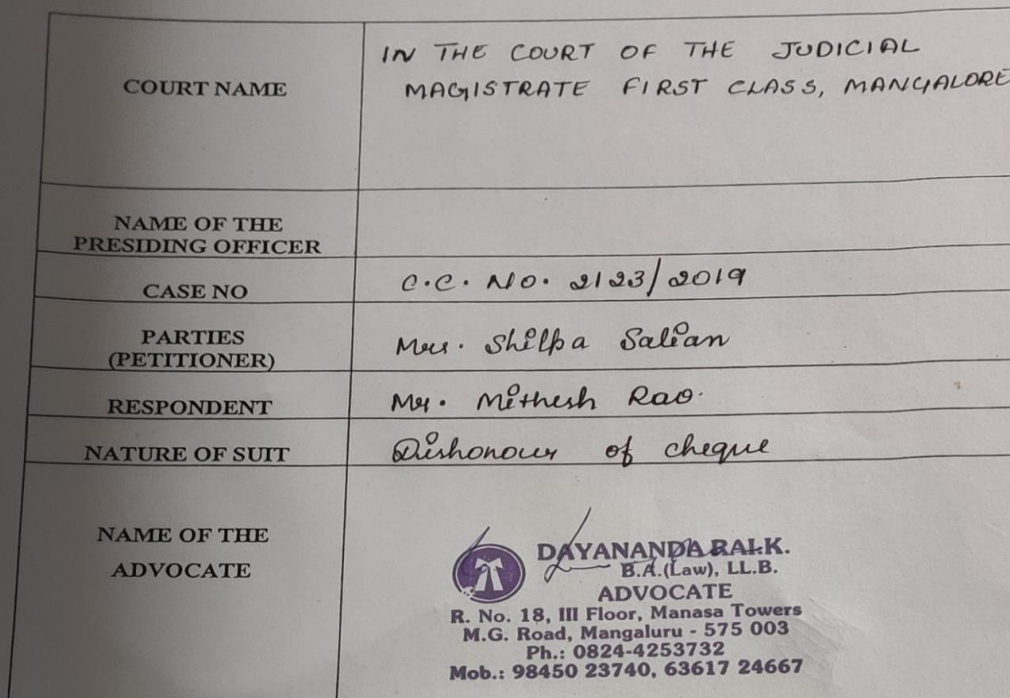 COURT NAME
IN THE COURT OF THE JUDICIAL
MAGISTRATE FIRST CLASS, MANGALORE
NAME OF THE
PRESIDING OFFICER
CASE NO
C.C. NO. 2123/2019
PARTIES
(PETITIONER)
Mrs. Shilpa Salian
RESPONDENT
Mr. Mithesh Rao.
NATURE OF SUIT
Dishonour of cheque
NAME OF THE
ADVOCATE
DAYANANDA RAI.K.
B.A.(Law), LL.B.
ADVOCATE
R. No. 18, III Floor, Manasa Towers
M.G. Road, Mangaluru - 575 003
Ph.: 0824-4253732
Mob.: 98450 23740, 63617 24667